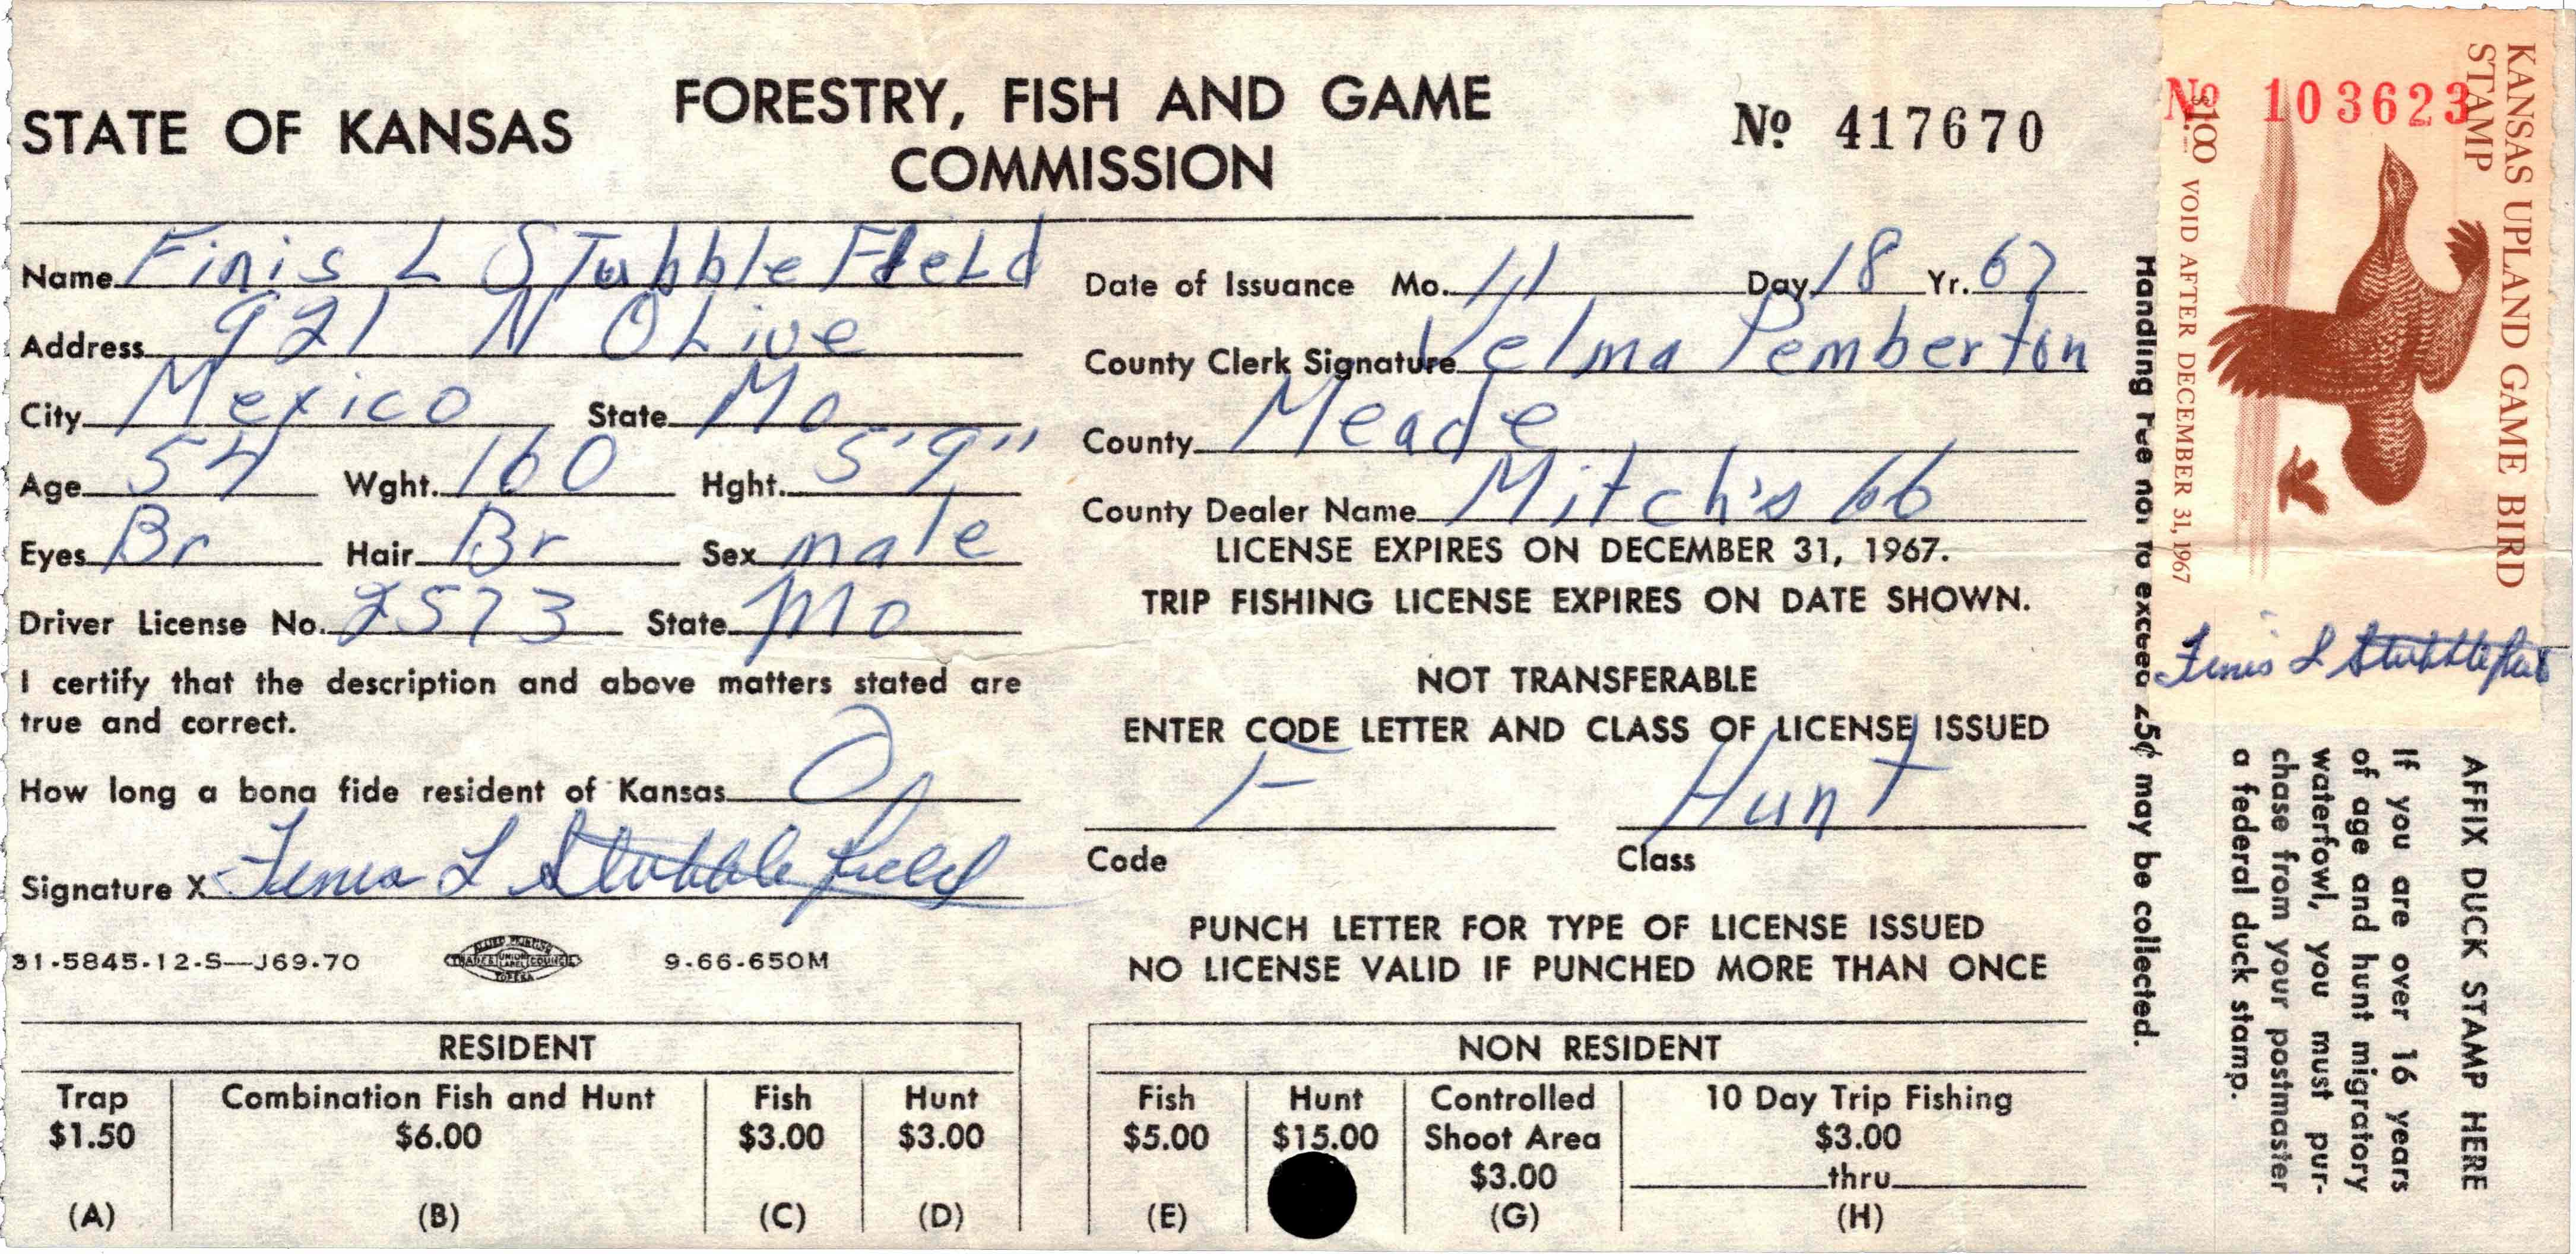 STATE OF KANSAS
FORESTRY, FISH AND GAME
COMMISSION
Nº 417670
Name Finis L Stubblefield
Address 921 N Olive
City Mexico State Mo
Age 54 Wght. 160 Hght. 5'9"
Eyes Br Hair Br Sex male
Driver License No. 2573 State Mo
I certify that the description and above matters stated are
true and correct.
How long a bona fide resident of Kansas 0
Signature X Finis L Stubblefield
31-5845-12-S—J69-70
ALLIED PRINTING
TRADES UNION LABEL COUNCIL
TOPEKA
9-66-650M
Date of Issuance Mo. 11 Day 18 Yr. 67
County Clerk Signature Velma Pemberton
County Meade
County Dealer Name Mitch's 66
LICENSE EXPIRES ON DECEMBER 31, 1967.
TRIP FISHING LICENSE EXPIRES ON DATE SHOWN.
NOT TRANSFERABLE
ENTER CODE LETTER AND CLASS OF LICENSE ISSUED
F Hunt
Code Class
PUNCH LETTER FOR TYPE OF LICENSE ISSUED
NO LICENSE VALID IF PUNCHED MORE THAN ONCE
RESIDENT
Trap Combination Fish and Hunt Fish Hunt
$1.50 $6.00 $3.00 $3.00
(A) (B) (C) (D)
NON RESIDENT
Fish Hunt Controlled 10 Day Trip Fishing
$5.00 $15.00 Shoot Area $3.00
$3.00 thru
(E) (G) (H)
Handling Fee not to exceed 25¢ may be collected.
KANSAS UPLAND GAME BIRD
STAMP
Nº 103623
$1.00 VOID AFTER DECEMBER 31, 1967
Finis L Stubblefield
AFFIX DUCK STAMP HERE
If you are over 16 years
of age and hunt migratory
waterfowl, you must pur-
chase from your postmaster
a federal duck stamp.